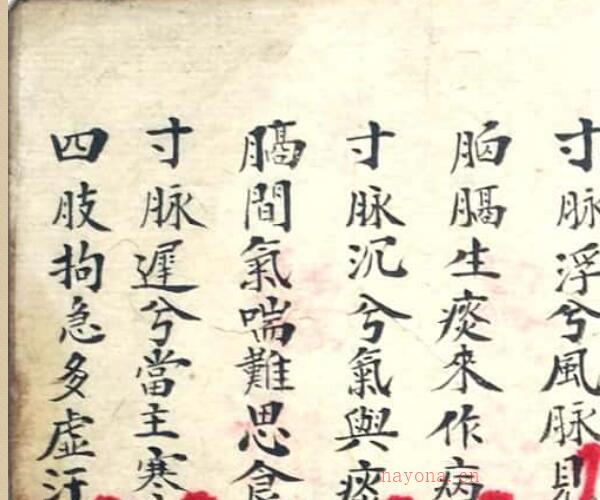 寸脉浮兮風脉
胸膈生痰來作病
寸脉沉兮氣與痰
膈間氣喘難思食
寸脉遲兮當主寒
四肢拘急多虛汗
nayona.cn